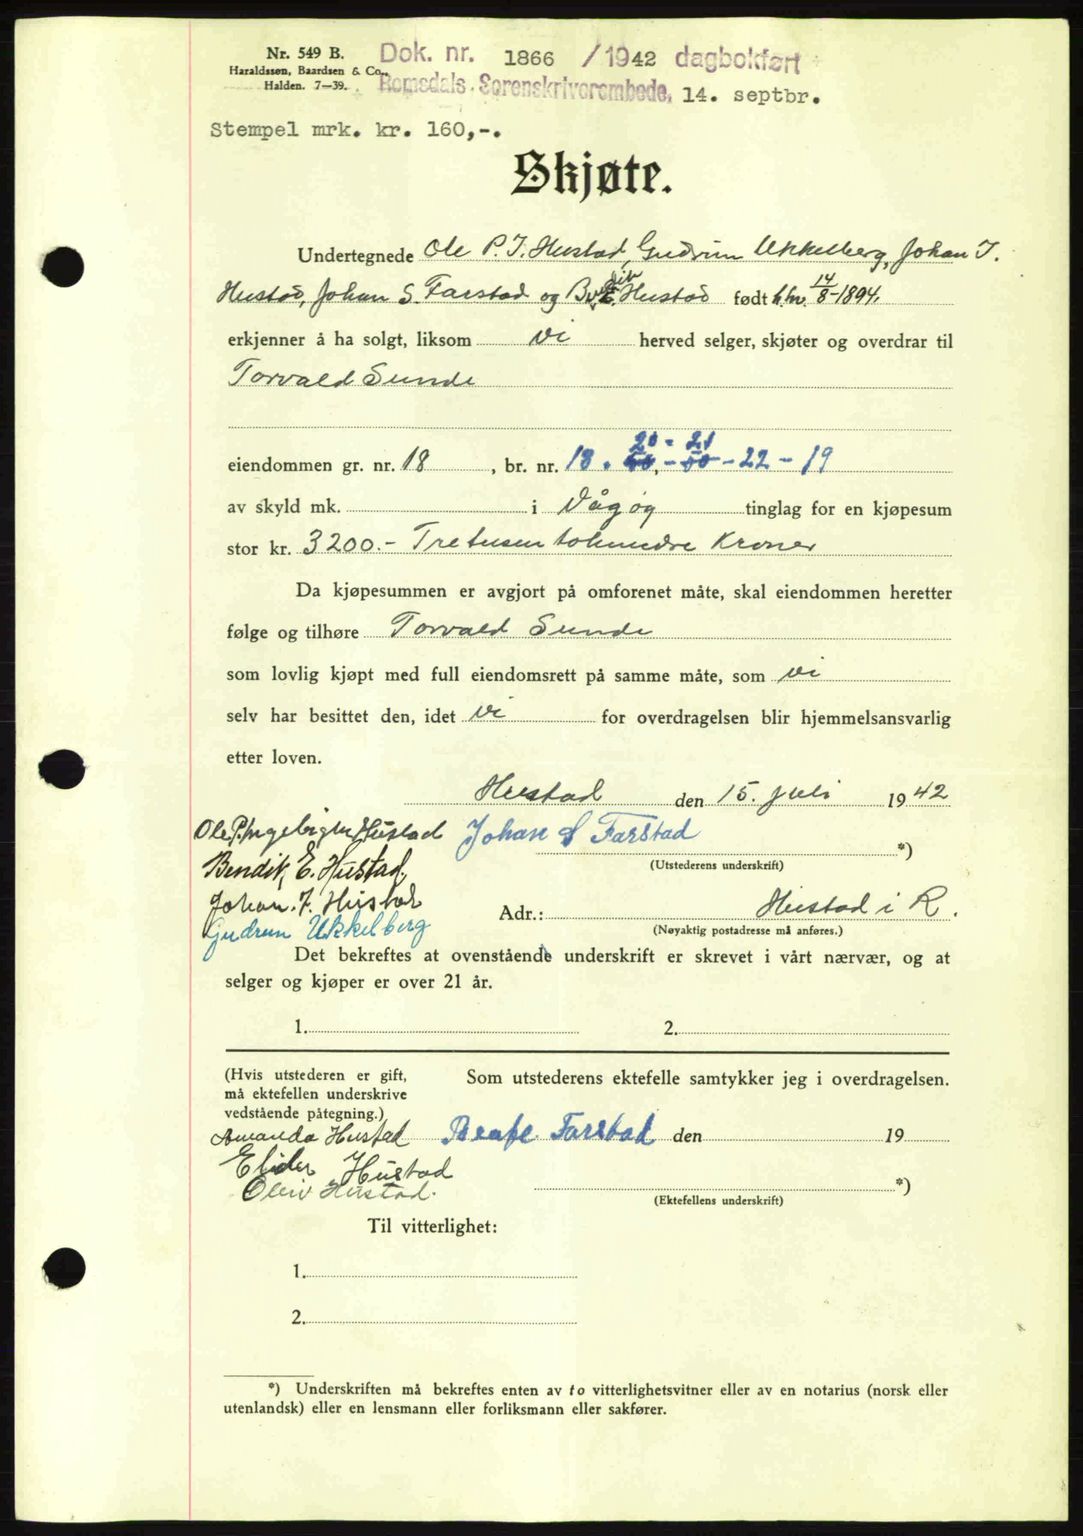 Nr. 549 B.
Haraldssen, Baardsen & Co.,
Halden. 7—39.
Dok. nr. 1866 /1942 dagbokført
Romsdals Sorenskriverembede, 14. septbr.
Stempel mrk. kr. 160,-.
Skjøte.
Undertegnede Ole P. I. Hustad, Gudrun Ukkelberg, Johan I.
Hustad, Johan S. Farstad og E. Hustad født 14/8-1894.
erkjenner å ha solgt, liksom vi herved selger, skjøter og overdrar til
Torvald Sunde
eiendommen gr. nr. 18, br. nr. 18 - 20 - 21 - 22 - 19
av skyld mk. i Vågøy tinglag for en kjøpesum
stor kr. 3200.- Tretusen tohundre Kroner
Da kjøpesummen er avgjort på omforenet måte, skal eiendommen heretter
følge og tilhøre Torvald Sunde
som lovlig kjøpt med full eiendomsrett på samme måte, som vi
selv har besittet den, idet vi for overdragelsen blir hjemmelsansvarlig
etter loven.
Hustad den 15. juli 1942
Ole P. Ingebrigtsen Hustad Johan S Farstad *)
(Utstederens underskrift)
Bendik E. Hustad.
Johan. I. Hustad
Adr.: Hustad i R.
Gudrun Ukkelberg
(Nøyaktig postadresse må anføres.)
Det bekreftes at ovenstående underskrift er skrevet i vårt nærvær, og at
selger og kjøper er over 21 år.
1. 2.
(Hvis utstederen er gift,
må ektefellen underskrive
vedstående påtegning.)
Som utstederens ektefelle samtykker jeg i overdragelsen.
Amanda Hustad Beate Farstad den 19
Hustad
Hustad.
*)
(Ektefellens underskrift)
Til vitterlighet:
1.
2.
*) Underskriften må bekreftes enten av to vitterlighetsvitner eller av en notarius (norsk eller
utenlandsk) eller en lensmann eller forliksmann eller sakfører.